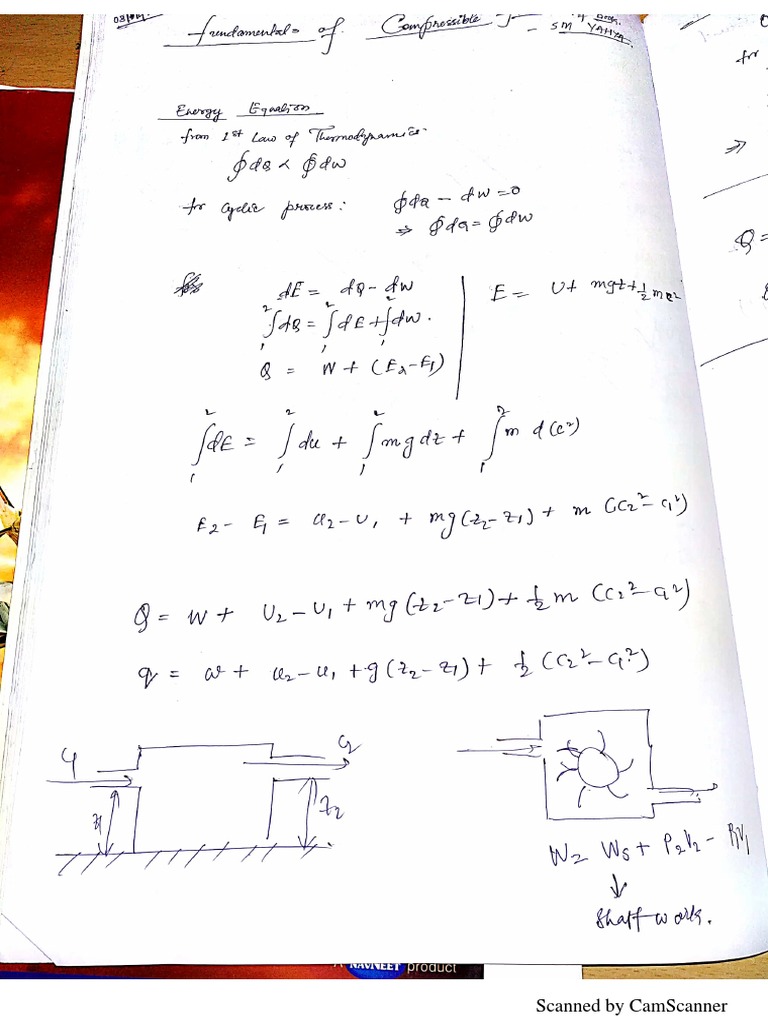 Fundamentals of Compressible
Book.
- SM YAHYA.
Energy Equation
from 1st Law of Thermodynamics.
∮dQ α ∮dw
for cyclic process: ∮dQ - dw = 0
⇒ ∮dQ = ∮dw
dE = dQ - dw
E = U + mgz + 1/2 mc²
₁∫² dQ = ₁∫² dE + ₁∫² dw.
Q = W + (E₂ - E₁)
₁∫² dE = ₁∫² du + ₁∫² mg dz + ₁∫² m d(c²)
E₂ - E₁ = U₂ - U₁ + mg(z₂ - z₁) + m (C₂² - C₁²)
Q = W + U₂ - U₁ + mg(z₂ - z₁) + 1/2 m (C₂² - C₁²)
q = w + u₂ - u₁ + g(z₂ - z₁) + 1/2 (C₂² - C₁²)
C₁
C₂
z₁
z₂
W = Ws + P₂V₂ - P₁V₁
↓
Shaft work.
for
⇒
Q =
A NAVNEET product
Scanned by CamScanner